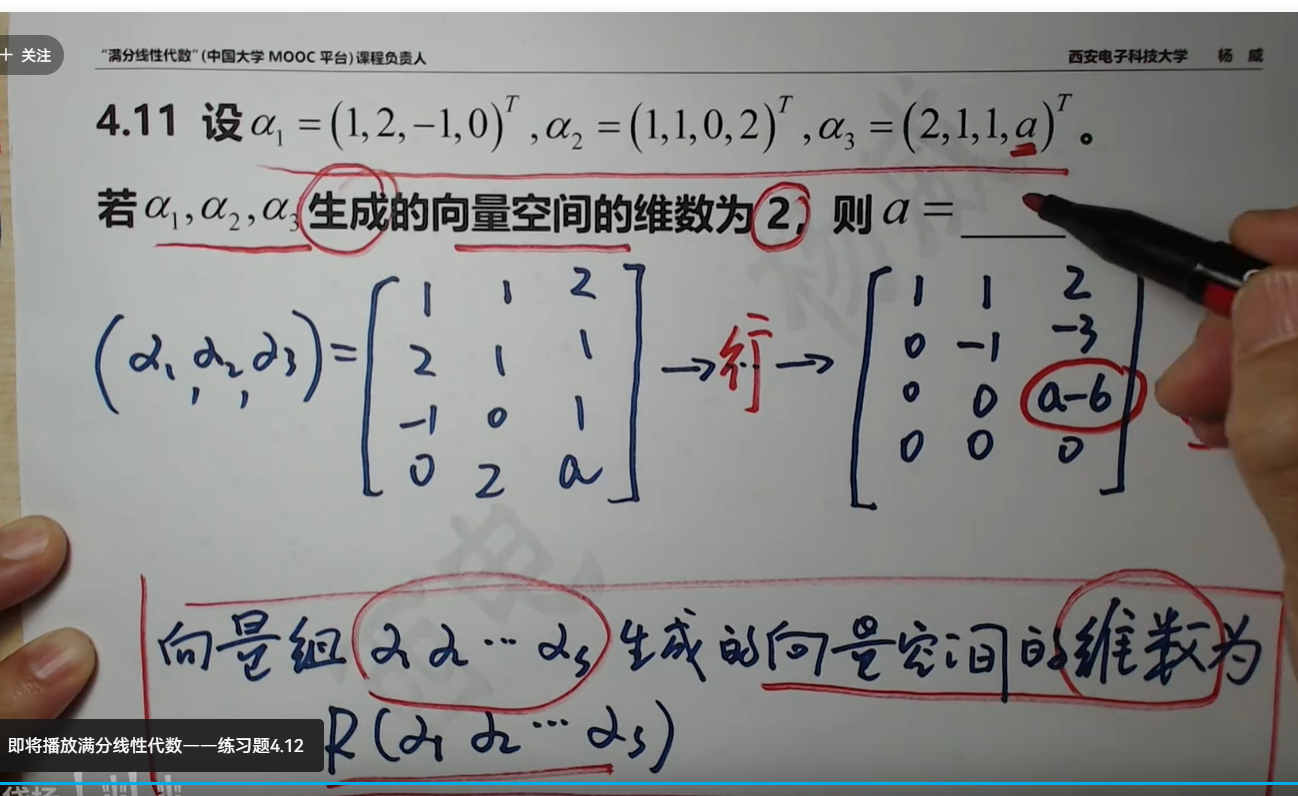 + 关注
“满分线性代数”(中国大学 MOOC 平台)课程负责人 西安电子科技大学 杨 威
4.11 设 α₁ = (1,2,−1,0)ᵀ, α₂ = (1,1,0,2)ᵀ, α₃ = (2,1,1,a)ᵀ。
若 α₁,α₂,α₃ 生成的向量空间的维数为 2, 则 a = ____
(α₁, α₂, α₃) = [ 1 1 2 → 行 → [ 1 1 2
2 1 1 0 −1 −3
−1 0 1 0 0 a−6
0 2 a ] 0 0 0 ]
向量组 α₁ α₂ ⋯ αₛ 生成的向量空间的维数为
R(α₁ α₂ ⋯ αₛ)
即将播放满分线性代数——练习题4.12